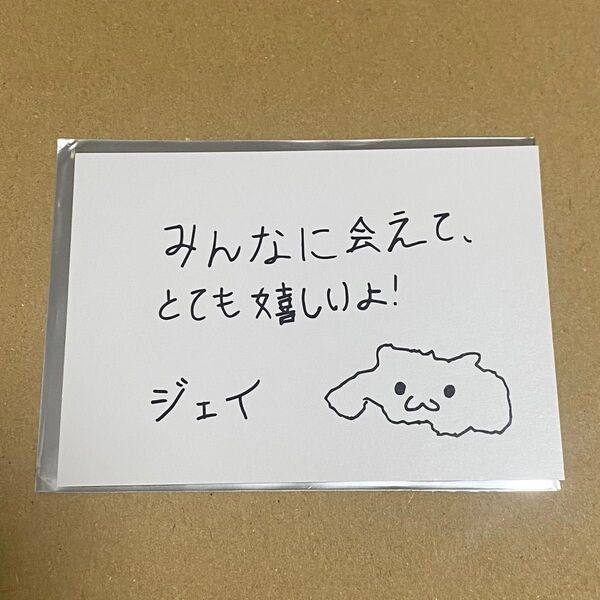 みんなに会えて、
とても嬉しいよ!
ジェイ